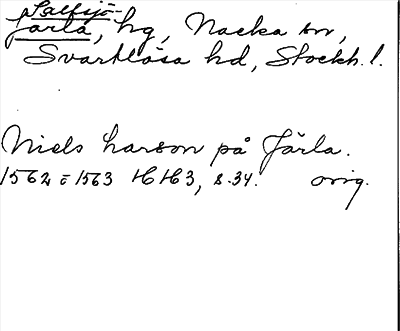 Saltsjö-
Järla, hg, Nacka sn,
Svartlösa hd, Stockh. l.
Niels Larson på Järla.
1562 - 1563 HH3, s. 34. orig.